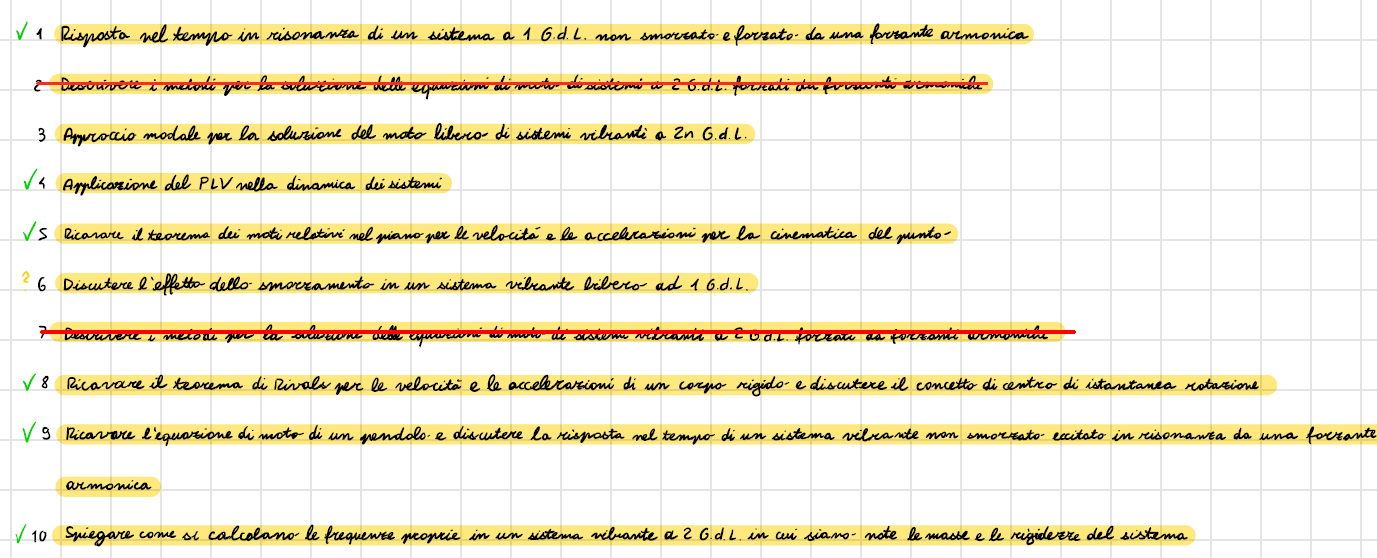 ✓ 1 Risposta nel tempo in risonanza di un sistema a 1 G.d.L. non smorzato e forzato da una forzante armonica
2 Descrivere i metodi per la soluzione delle equazioni di moto di sistemi a 2 G.d.L. forzati da forzanti armoniche
3 Approccio modale per la soluzione del moto libero di sistemi vibranti a 2n G.d.L.
✓ 4 Applicazione del PLV nella dinamica dei sistemi
✓ 5 Ricavare il teorema dei moti relativi nel piano per le velocità e le accelerazioni per la cinematica del punto
? 6 Discutere l'effetto dello smorzamento in un sistema vibrante libero ad 1 G.d.L.
7 Descrivere i metodi per la soluzione delle equazioni di moto di sistemi vibranti a 2 G.d.L. forzati da forzanti armoniche
✓ 8 Ricavare il teorema di Rivals per le velocità e le accelerazioni di un corpo rigido e discutere il concetto di centro di istantanea rotazione
✓ 9 Ricavare l'equazione di moto di un pendolo e discutere la risposta nel tempo di un sistema vibrante non smorzato eccitato in risonanza da una forzante
armonica
✓ 10 Spiegare come si calcolano le frequenze proprie in un sistema vibrante a 2 G.d.L. in cui siano note le masse e le rigidezze del sistema